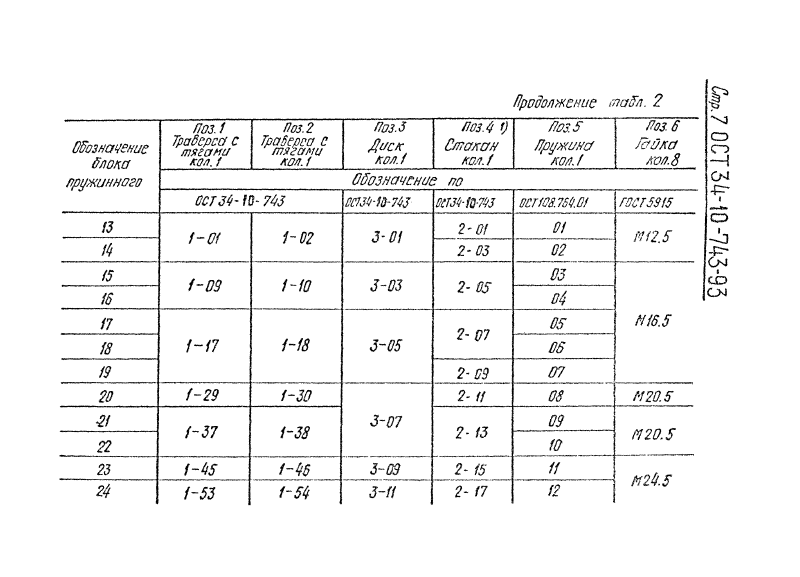 Продолжение табл. 2
Стр. 7 ОСТ 34-10-743-93
Обозначение блока пружинного
Поз. 1 Траверса с тягами кол. 1
Поз. 2 Траверса с тягами кол. 1
Поз. 3 Диск кол. 1
Поз. 4 1) Стакан кол. 1
Поз. 5 Пружина кол. 1
Поз. 6 Гайка кол. 8
Обозначение по
ОСТ 34-10-743 ОСТ34-10-743 ОСТ34-10-743 ОСТ108.764.01 ГОСТ 5915
13 1-01 1-02 3-01 2-01 01 М12.5
14 2-03 02
15 1-09 1-10 3-03 2-05 03 М16.5
16 04
17 1-17 1-18 3-05 2-07 05
18 06
19 2-09 07
20 1-29 1-30 3-07 2-11 08 М20.5
21 1-37 1-38 2-13 09 М20.5
22 10
23 1-45 1-46 3-09 2-15 11 М24.5
24 1-53 1-54 3-11 2-17 12